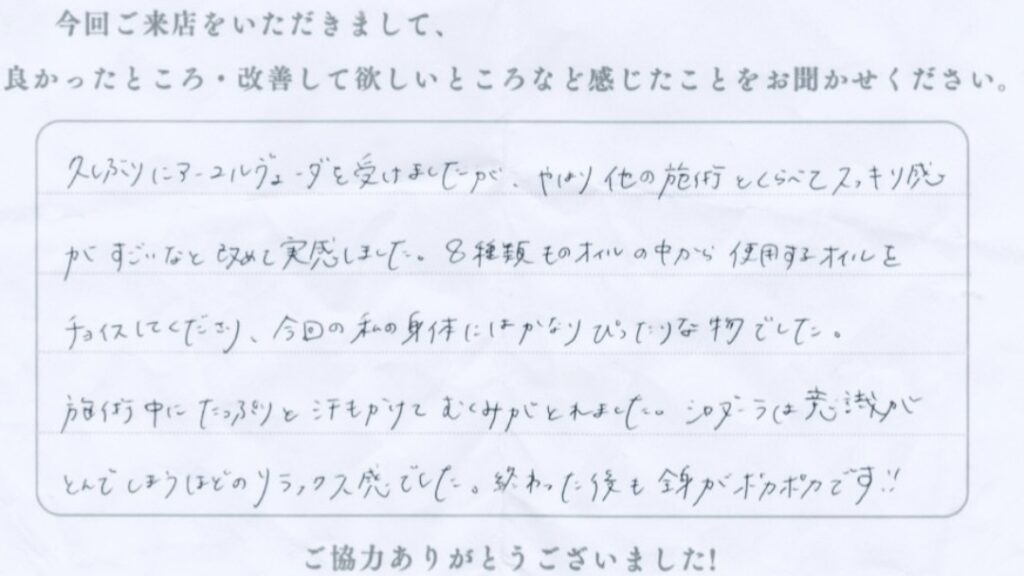 今回ご来店をいただきまして、
良かったところ・改善して欲しいところなど感じたことをお聞かせください。
久しぶりにアーユルヴェーダを受けましたが、やはり他の施術とくらべてスッキリ感
がすごいなと改めて実感しました。8種類ものオイルの中から使用するオイルを
チョイスしてくださり、今回の私の身体にはかなりぴったりな物でした。
施術中にたっぷりと汗もかけてむくみがとれました。シロダーラは意識が
とんでしまうほどのリラックス感でした。終わった後も全身がポカポカです!!
ご協力ありがとうございました!